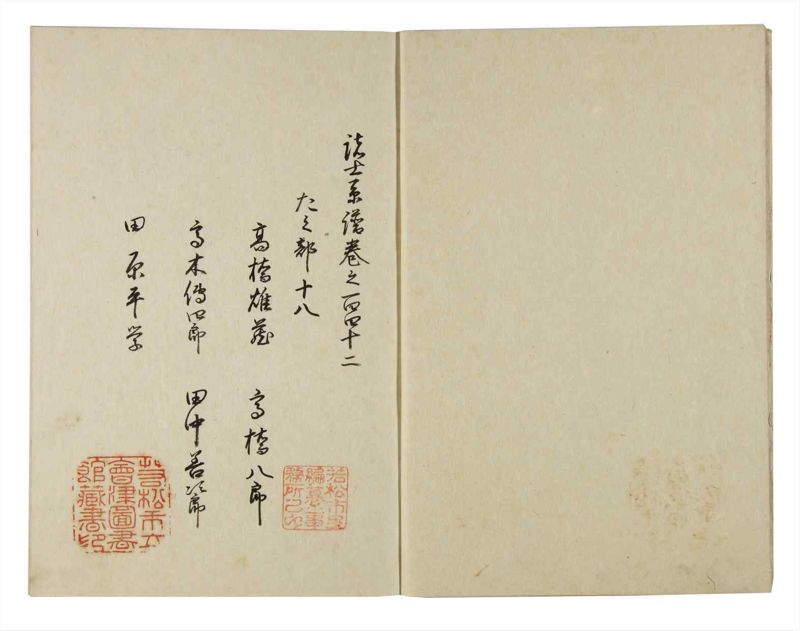 諸士系譜巻之百四十二
た之部十八
高橋雄蔵 高橋八郎
高木傳四郎 田中善次郎
田原平学
若松市史
編纂事
務所之印
若松市立
會津圖書
館藏書印